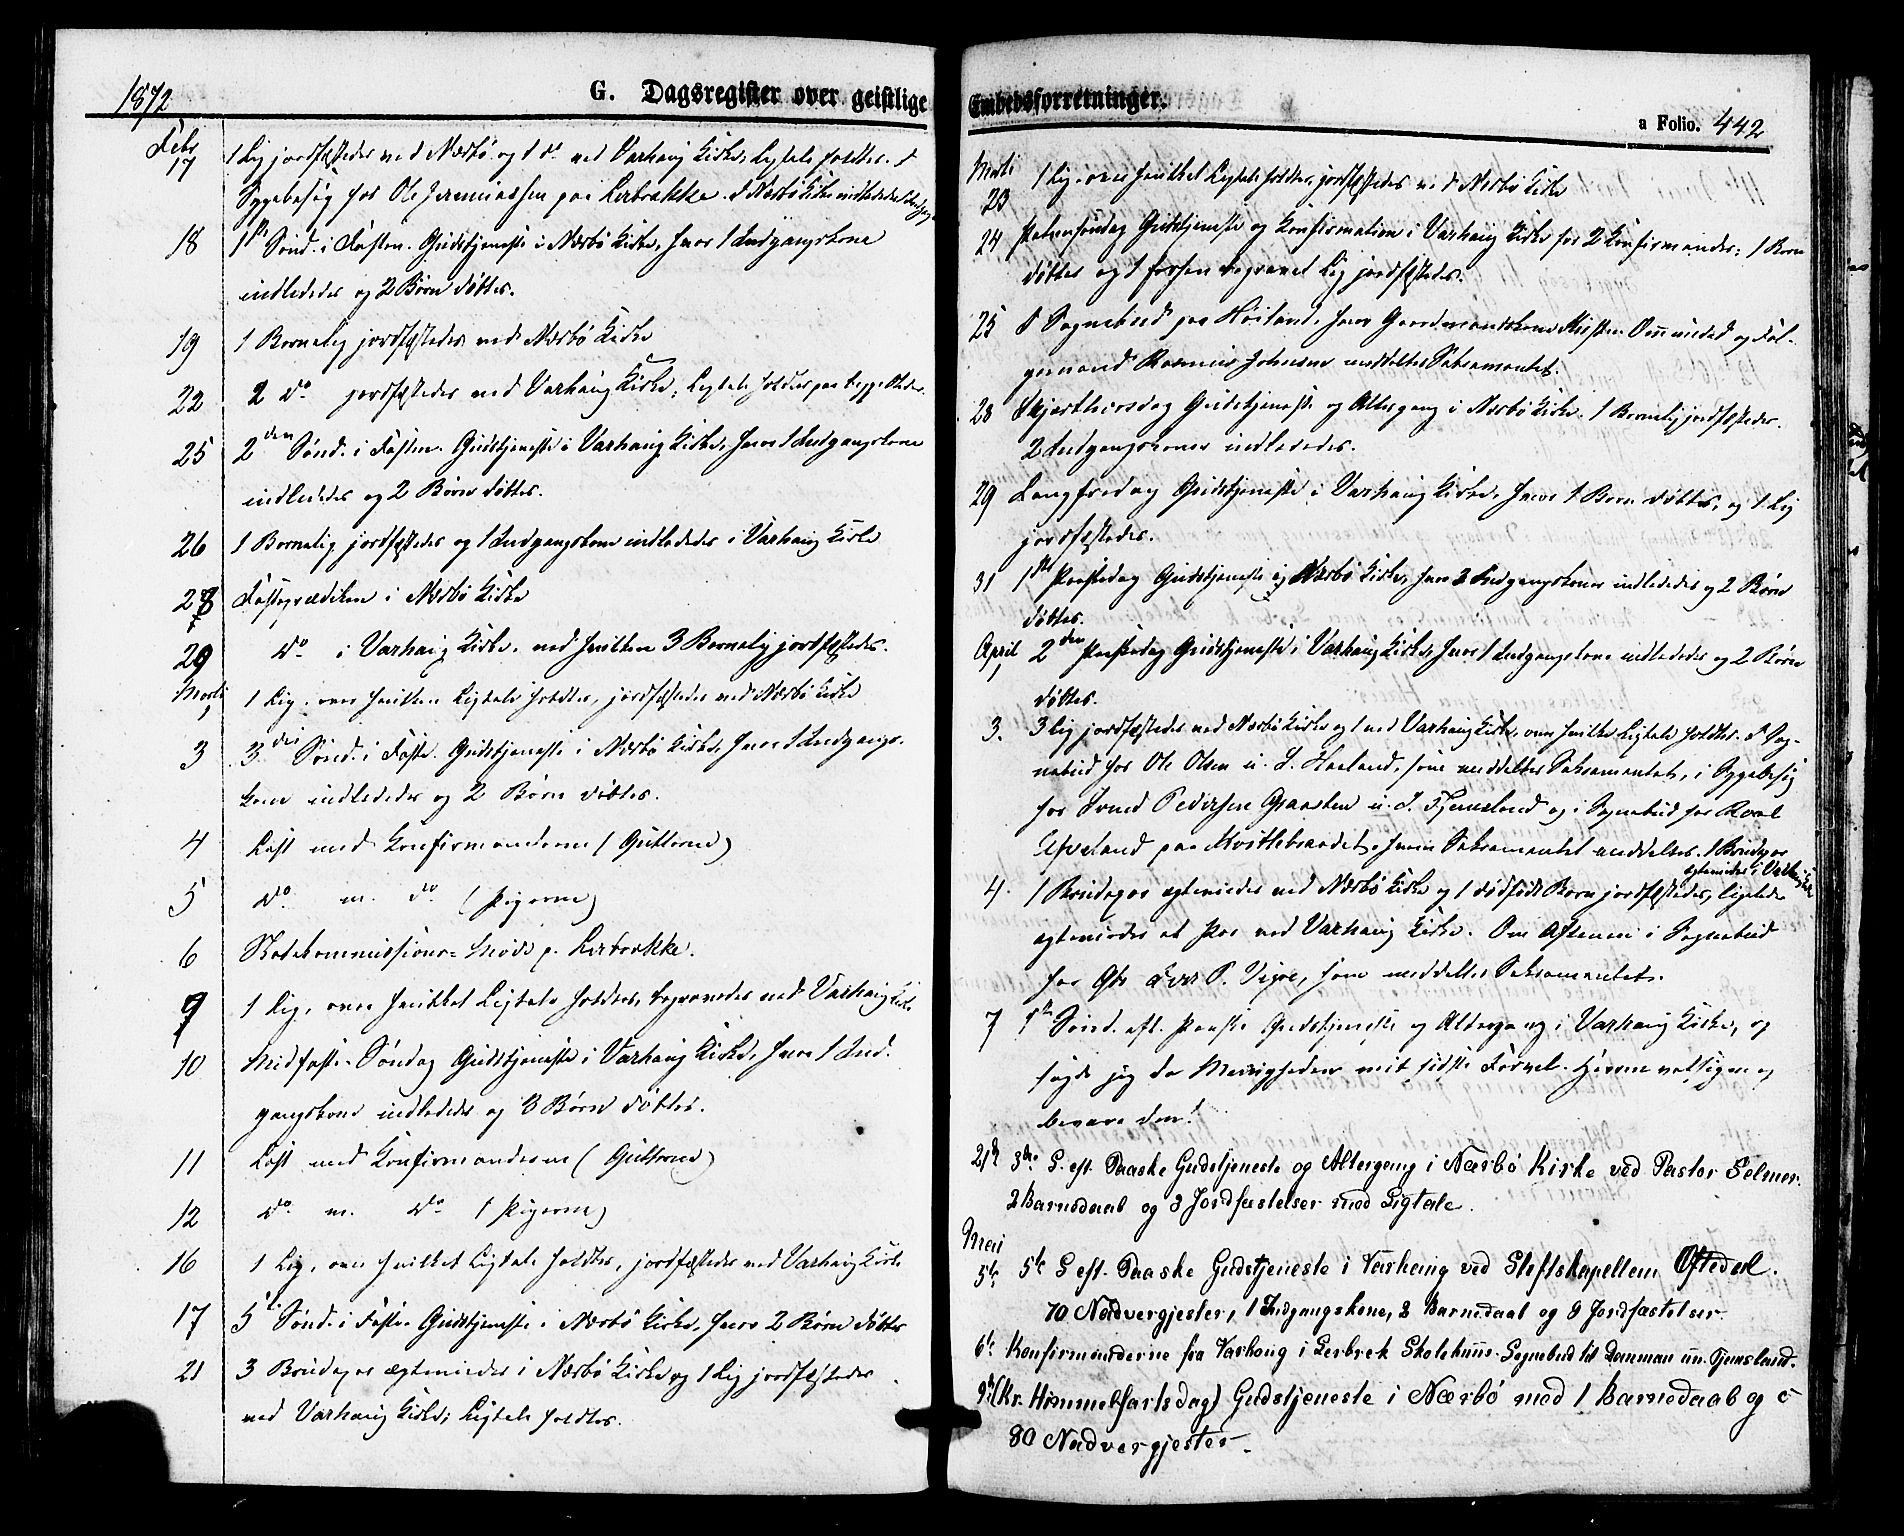 1872
G. Dagsregister over geistlige
Febr
17 1 Lig jordfæstedes ved Nærbø og 1 do ved Varhaug Kirke, Ligtale holdtes. I
Sygebesøg hos Ole Jeremiassen paa Lerbrække. I Nærbø Kirke indlededes
18 1ste Sønd. i Fasten. Gudstjeneste i Nærbø Kirke, hvor 1 Indgangskone
indlededes og 2 Børn døbtes.
19 1 Barnelig jordfæstedes ved Nærbø Kirke
22 2 do jordfæstedes ved Varhaug Kirke, Ligtale holdtes paa begge Steder
25 2den Sønd. i Fasten. Gudstjeneste i Varhaug Kirke, hvor 1 Indgangskone
indlededes og 2 Børn døbtes.
26 1 Barnelig jordfæstedes og 1 Indgangskone indlededes i Varhaug Kirke
28 Fasteprædiken i Nærbø Kirke
29 do i Varhaug Kirke, ved hvilken 3 Barnelig jordfæstedes.
Marti
1 1 Lig, over hvilken Ligtale holdtes, jordfæstedes ved Nærbø Kirke
3 3die Sønd. i Faste. Gudstjeneste i Nærbø Kirke, hvor 1 Indgangs-
kone indlededes og 2 Børn døbtes.
4 Læst med Konfirmanderne (Gutterne)
5 do m. do (Pigerne)
6 Skolekommissions-Møde p. Lerbrække.
9 1 Lig, over hvilket Ligtale holdtes, begravedes ved Varhaug Kirke
10 Midfaste-Søndag Gudstjeneste i Varhaug Kirke, hvor 1 Ind-
gangskone indlededes og 3 Børn døbtes.
11 Læst med Konfirmanderne (Gutterne)
12 do m. do (Pigerne)
16 1 Lig, over hvilket Ligtale holdtes, jordfæstedes ved Varhaug Kirke
17 5te Sønd. i Faste Gudstjeneste i Nærbø Kirke, hvor 2 Børn døbtes
21 3 Brudepar ægteviedes i Nærbø Kirke og 1 Lig jordfæstedes
ved Varhaug Kirke; Ligtale holdtes.
Embedsforretninger.
a Folio. 442
Marti
23 1 Lig, over hvilket Ligtale holdtes, jordfæstedes ved Nærbø Kirke
24 Palmesøndag Gudstjeneste og Konfirmation i Varhaug Kirke for 2 Konfirmander; 1 Barn
døbtes og 1 forhen begravet Lig jordfæstedes.
25 I Sognebud paa Høiland, hvor Gaardmandskone Ommundsd og Føl-
gemand Rasmus Johnsen meddeltes Sakramentet.
28 Skjærthorsdag Gudstjeneste og Altergang i Nærbø Kirke. 1 Barnelig jordfæstedes.
2 Indgangskoner indlededes.
29 Langfredag Gudstjeneste i Varhaug Kirke, hvor 1 Barn døbtes, og 1 Lig
jordfæstedes.
31 1ste Paaskedag Gudstjeneste i Nærbø Kirke, hvor 2 Indgangskoner indlededes og 2 Børn
døbtes.
April
1 2den Paaskedag Gudstjeneste i Varhaug Kirke, hvor 1 Indgangskone indlededes og 2 Børn
døbtes.
3. 3 Lig jordfæstedes ved Nærbø Kirke og 1 ved Varhaug Kirke, over hvilke Ligtale holdtes. I Sog-
nebud hos Ole Olsen u. Haaland, som meddeltes Sakramentet, i Sygebesøg
hos Svend Pedersen u. Tjemsland og i Sognebud hos
paa, hvem Sakramentet meddeltes. 1 Brudepar
ægteviedes i Varhaug Kirke
4. 1 Brudepar ægteviedes ved Nærbø Kirke og 1 dødfødt Barn jordfæstedes, ligeledes
ægteviedes et Par ved Varhaug Kirke. Om Aftenen i Sognebud
hos Vigre, som meddeltes Sakramentet.
7 1ste Sønd. eft. Paaske Gudstjeneste og Altergang i Varhaug Kirke, og
sagde jeg da Menigheden mit sidste Farvel. Herren velsigne og
bevare den!
21de 3die S. eft. Paaske Gudstjeneste og Altergang i Nærbø Kirke ved Pastor Selmer.
2 Barnedaab og 3 Jordfæstelser med Ligtale.
Mai
5te 5te S eft. Paaske Gudstjeneste i Varhaug ved Stiftskapellan Oftedal.
70 Nadvergjester, 1 Indgangskone, 2 Barnedaab og 8 Jordfæstelser
6te Konfirmanderne fra Varhaug i Lerbrek Skolehuus. Sognebud til un. Tjemsland.
9de (Kr. Himmelfartsdag) Gudstjeneste i Nærbø med 1 Barnedaab og
80 Nadvergjester.